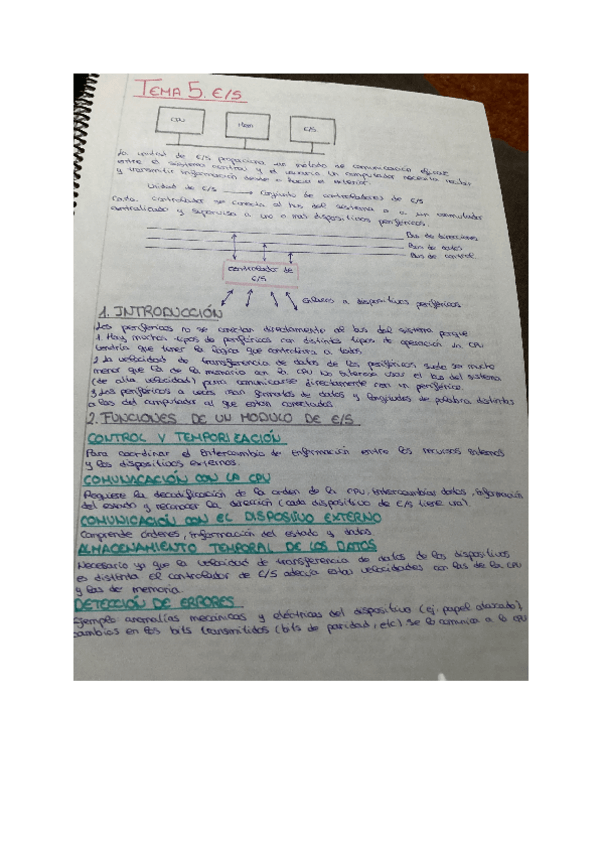 TEMA 5. E/S
CPU
Mem
E/S
La unidad de E/S proporciona un método de comunicación eficaz
entre el sistema central y el usuario. Un computador necesita recibir
y transmitir información desde o hacia el exterior.
Unidad de E/S → Conjunto de controladores de E/S
Cada controlador se conecta al bus del sistema o a un conmutador
centralizado y supervisa a uno o mas dispositivos periféricos.
Bus de direcciones
Bus de datos
Bus de control
controlador de
E/S
Enlaces a dispositivos periféricos
1. INTRODUCCIÓN
Los periféricos no se conectan directamente al bus del sistema porque
1 Hay muchos tipos de periféricos con distintos tipos de operación. La CPU
tendría que tener la lógica que controlara a todos.
2 La velocidad de transferencia de datos de los periféricos suele ser mucho
menor que la de la memoria con la CPU. No interesa usar el bus del sistema
(de alta velocidad) para comunicarse directamente con un periférico.
3 Los periféricos a veces usan formatos de datos y longitudes de palabra distintas
a las del computador al que están conectados.
2. FUNCIONES DE UN MODULO DE E/S
CONTROL Y TEMPORIZACIÓN
Para coordinar el intercambio de información entre los recursos internos
y los dispositivos externos.
COMUNICACIÓN CON LA CPU
Requiere la decodificación de la orden de la CPU, intercambiar datos, información
del estado y reconocer la dirección (cada dispositivo de E/S tiene una)
COMUNICACIÓN CON EL DISPOSITIVO EXTERNO
Comprende órdenes, información del estado y datos
ALMACENAMIENTO TEMPORAL DE LOS DATOS
Necesario ya que la velocidad de transferencia de datos de los dispositivos
es distinta. El controlador de E/S adecúa estas velocidades con las de la CPU
y las de memoria.
DETECCIÓN DE ERRORES
Ejemplo anomalías mecánicas y eléctricas del dispositivo (ej. papel atascado)
cambios en los bits transmitidos (bits de paridad, etc) Se lo comunica a la CPU